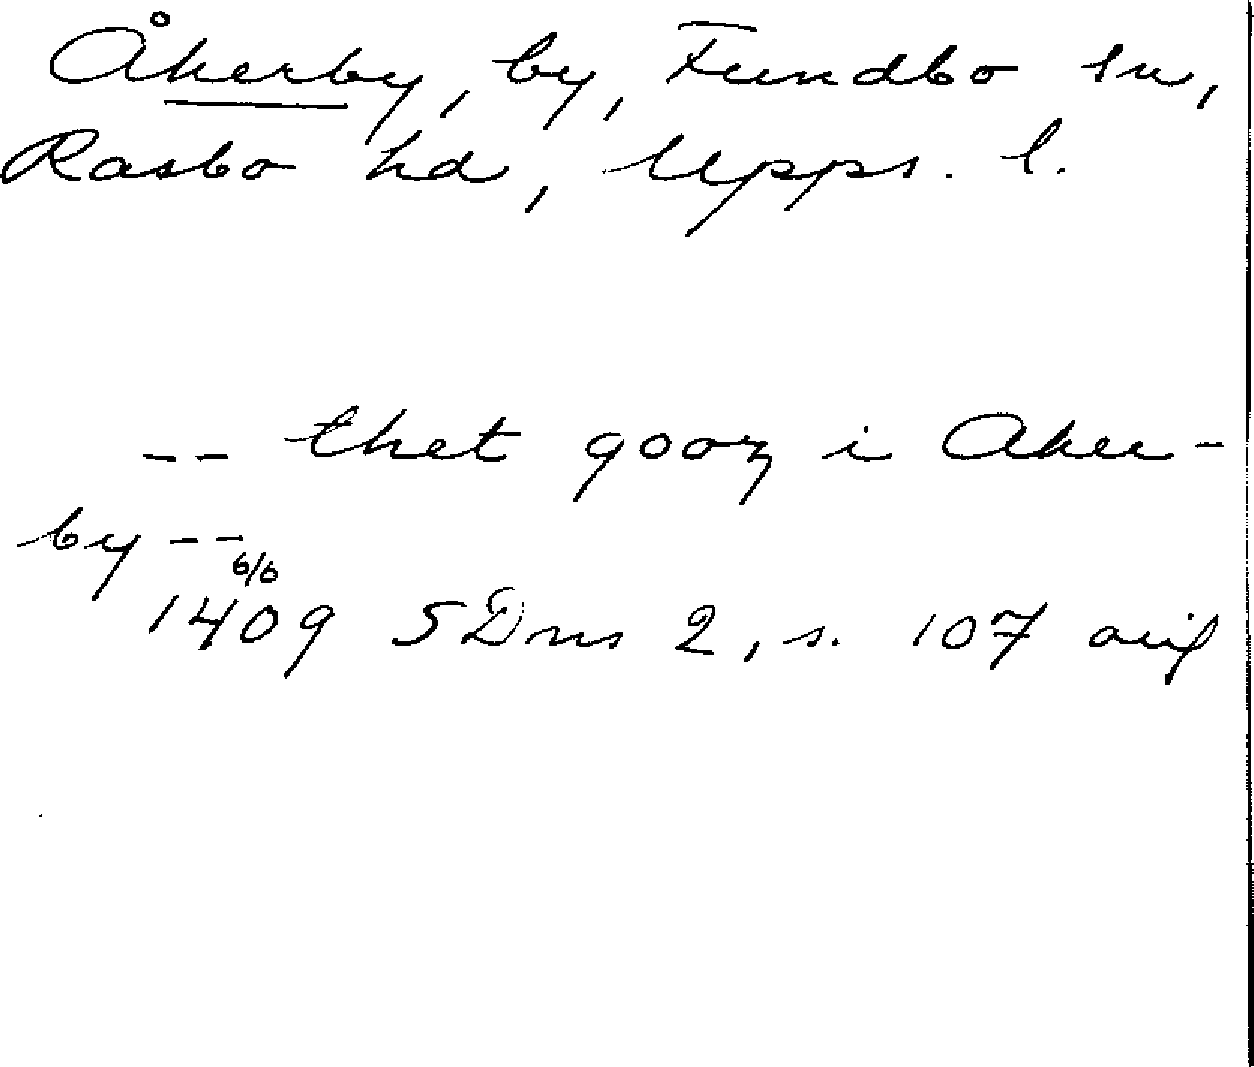 Åkerby, by, Fundbo sn,
Rasbo hd, Upps. l.
-- thet gooz i Aker-
by --
6/6
1409 SDns 2, s. 107 avif